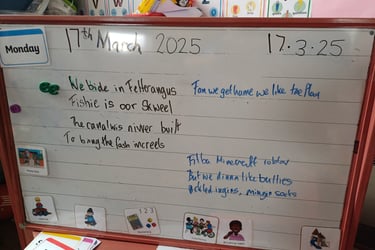 Monday
17th March 2025
17.3.25
We bide in Fetterangus
Fishie is oor skweel
The canal wis nivver built
To bring the fash in creels
Fan we get hame we like tae play
Fifba Minecraft roblox
But we dinna like bullies
mingin socks
1 2 3